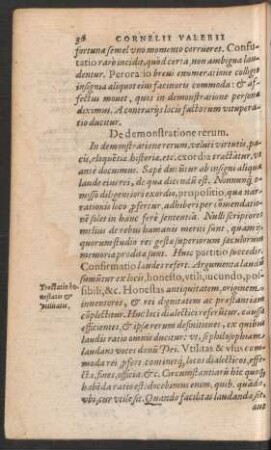 38 CORNELII VALERII
fortuna semel vno momento corrueret. Confu-
tatio raro incidit, quòd certa, non ambigua lau-
dentur. Peroratio breui enumeratione colligit
insignia aliquot eius facinoris commoda: & af-
fectus mouet, quos in demonstratione personæ
diximus. A contrarijs locis factorum vitupera-
tio ducitur.
De demonstratione rerum.
In demonstratione rerum, veluti virtutis, pa-
cis, eloquentiæ, historiæ, etc. exordia tractatur, vt
ante docuimus. Sæpe ducitur ab insigni aliqua
laude eius rei, de qua dicendū est. Nonnunq̃ o-
misso diligentiori exordio, propositio, quæ nar-
rationis loco profertur, adhiberi per cōmendatio-
nē solet in hanc ferè sententiā. Nulli scriptores
melius de rebus humanis meriti sunt, quàm qui
quorum studio res gestæ superiorum sæculorum
memoriæ prodita sunt. Huic partitio succedit.
Confirmatio laudes refert. Argumenta laudis
sumūtur ex loco, honesto, vtili, iucundo, pos-
sibili, &c. Honestas antiquitatem, originem,
inuentores, & rei dignitatem ac præstantiam
cōplectitur. Huc loci dialectici referūtur, caussæ
efficientes, & ipsæ rerum definitiones, ex quibus
laudis ratio omnis ducitur: vt, si philosophiam
laudans vocet donū Dei. Vtilitas & vsus com-
moda rei profert, continetq́; locos dialecticos, effe-
cta, fines, officia, &c. Circumstantiarū hic quoq́;
habēda ratio est: docebimus enim, quib. quādo,
vbi, cur vtile sit. Quando facilitas laudanda, sit
aut
Tractatio ho-
nestatis &
vtilitatis.